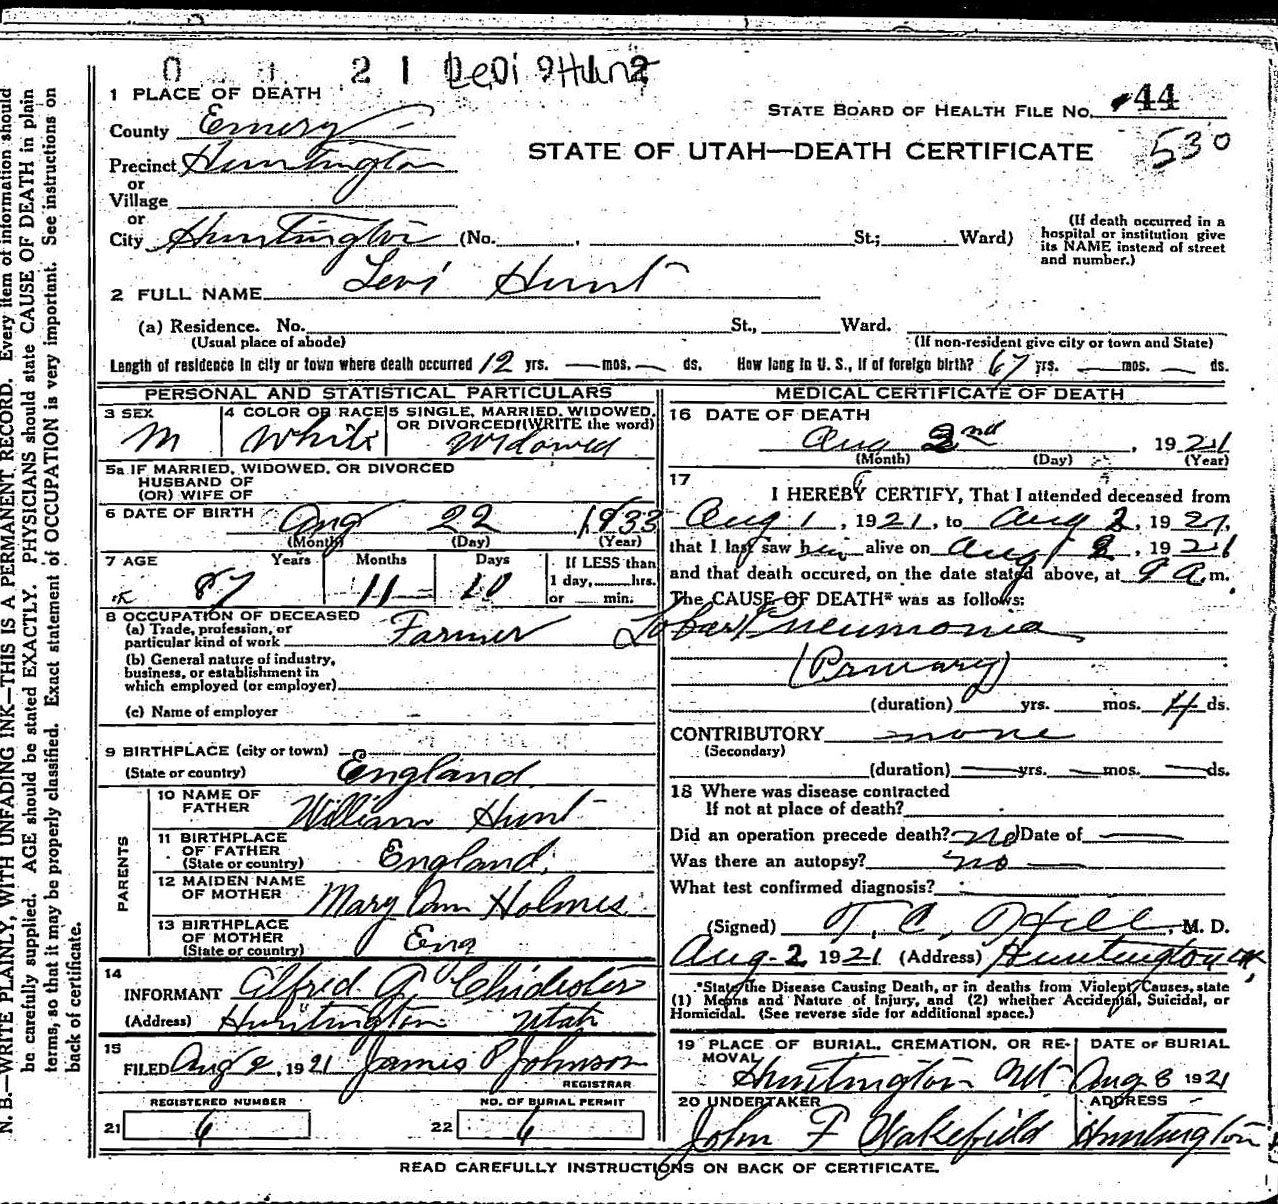 0 2 1 Levi Hunt
1 PLACE OF DEATH
County Emery
STATE BOARD OF HEALTH FILE No. 44
530
Precinct Huntington
STATE OF UTAH—DEATH CERTIFICATE
or
Village
or
City Huntington (No. , St.; Ward)
(If death occurred in a hospital or institution give its NAME instead of street and number.)
2 FULL NAME Levi Hunt
(a) Residence. No. St., Ward.
(Usual place of abode) (If non-resident give city or town and State)
Length of residence in city or town where death occurred 12 yrs. — mos. — ds. How long in U. S., if of foreign birth? 67 yrs. — mos. — ds.
PERSONAL AND STATISTICAL PARTICULARS
3 SEX
M
4 COLOR OR RACE
White
5 SINGLE, MARRIED, WIDOWED, OR DIVORCED (WRITE the word)
Widowed
5a IF MARRIED, WIDOWED, OR DIVORCED
HUSBAND OF
(OR) WIFE OF
6 DATE OF BIRTH Aug 22 1833
(Month) (Day) (Year)
7 AGE Years Months Days
87 11 10
If LESS than
1 day, hrs.
or min.
8 OCCUPATION OF DECEASED
(a) Trade, profession, or
particular kind of work Farmer
(b) General nature of industry,
business, or establishment in
which employed (or employer)
(c) Name of employer
9 BIRTHPLACE (city or town)
(State or country) England
PARENTS
10 NAME OF
FATHER William Hunt
11 BIRTHPLACE
OF FATHER
(State or country) England.
12 MAIDEN NAME
OF MOTHER Mary Ann Holmes
13 BIRTHPLACE
OF MOTHER
(State or country) Eng
14
INFORMANT Alfred A Chidester
(Address) Huntington Utah
15
FILED Aug 2, 1921 James P Johnson
REGISTRAR
REGISTERED NUMBER NO. OF BURIAL PERMIT
21 6 22 6
MEDICAL CERTIFICATE OF DEATH
16 DATE OF DEATH
Aug 2nd, 1921
(Month) (Day) (Year)
17
I HEREBY CERTIFY, That I attended deceased from
Aug 1, 1921, to Aug 2, 1921,
that I last saw him alive on Aug 2, 1921
and that death occured, on the date stated above, at 9 a m.
The CAUSE OF DEATH* was as follows:
Lobar Pneumonia
(Primary)
(duration) yrs. mos. 4 ds.
CONTRIBUTORY none
(Secondary)
(duration) — yrs. — mos. — ds.
18 Where was disease contracted
If not at place of death?
Did an operation precede death? no Date of —
Was there an autopsy? no —
What test confirmed diagnosis?
(Signed) T. C. Hill, M. D.
Aug. 2 1921 (Address) Huntington Ut.
*State the Disease Causing Death, or in deaths from Violent Causes, state
(1) Means and Nature of Injury, and (2) whether Accidental, Suicidal, or
Homicidal. (See reverse side for additional space.)
19 PLACE OF BURIAL, CREMATION, OR RE-
MOVAL
Huntington Ut
DATE OF BURIAL
Aug 3 1921
20 UNDERTAKER
John F Wakefield
ADDRESS
Huntington
READ CAREFULLY INSTRUCTIONS ON BACK OF CERTIFICATE.
N. B.—WRITE PLAINLY, WITH UNFADING INK—THIS IS A PERMANENT RECORD. Every item of information should
be carefully supplied. AGE should be stated EXACTLY. PHYSICIANS should state CAUSE OF DEATH in plain
terms, so that it may be properly classified. Exact statement of OCCUPATION is very important. See instructions on
back of certificate.